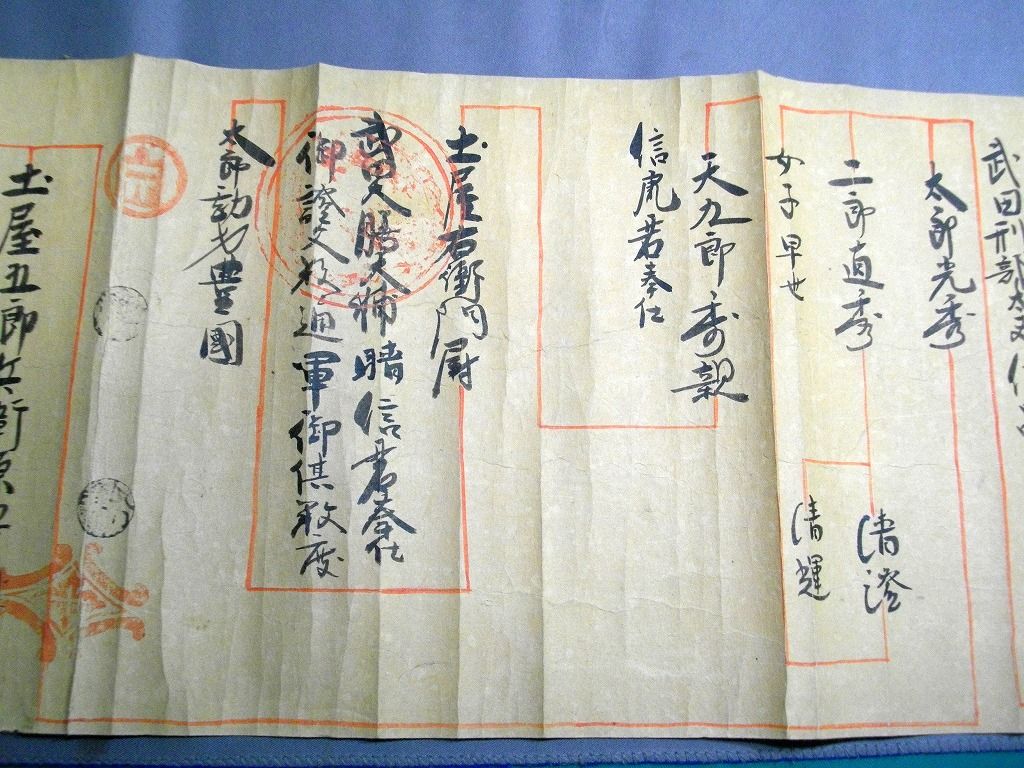 武田刑部大夫信
太郎光秀
二郎直秀
清澄
女子早世
清輝
天九郎秀親
信虎君奉仕
土屋右衛門尉
武田大膳大輔晴信君奉仕
御證文数通軍御供数度
太郎 豊國
土屋五郎兵衛